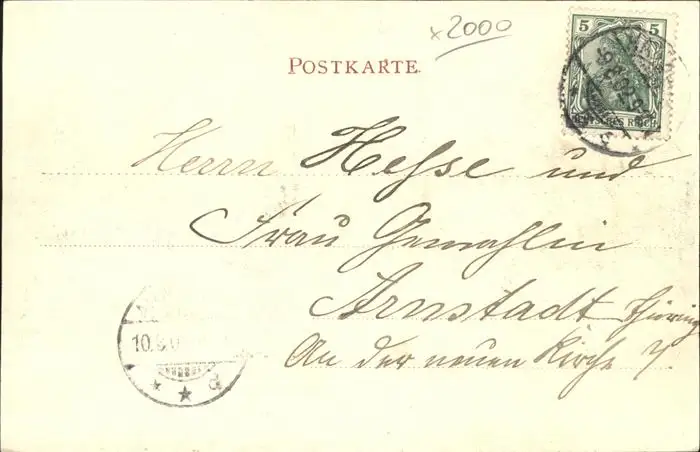 x2000
POSTKARTE.
5 5
DEUTSCHES REICH
Herrn Hesse und
Frau Gemahlin
Arnstadt Thüring
An der neuen Kirche 7.
10.
* * d